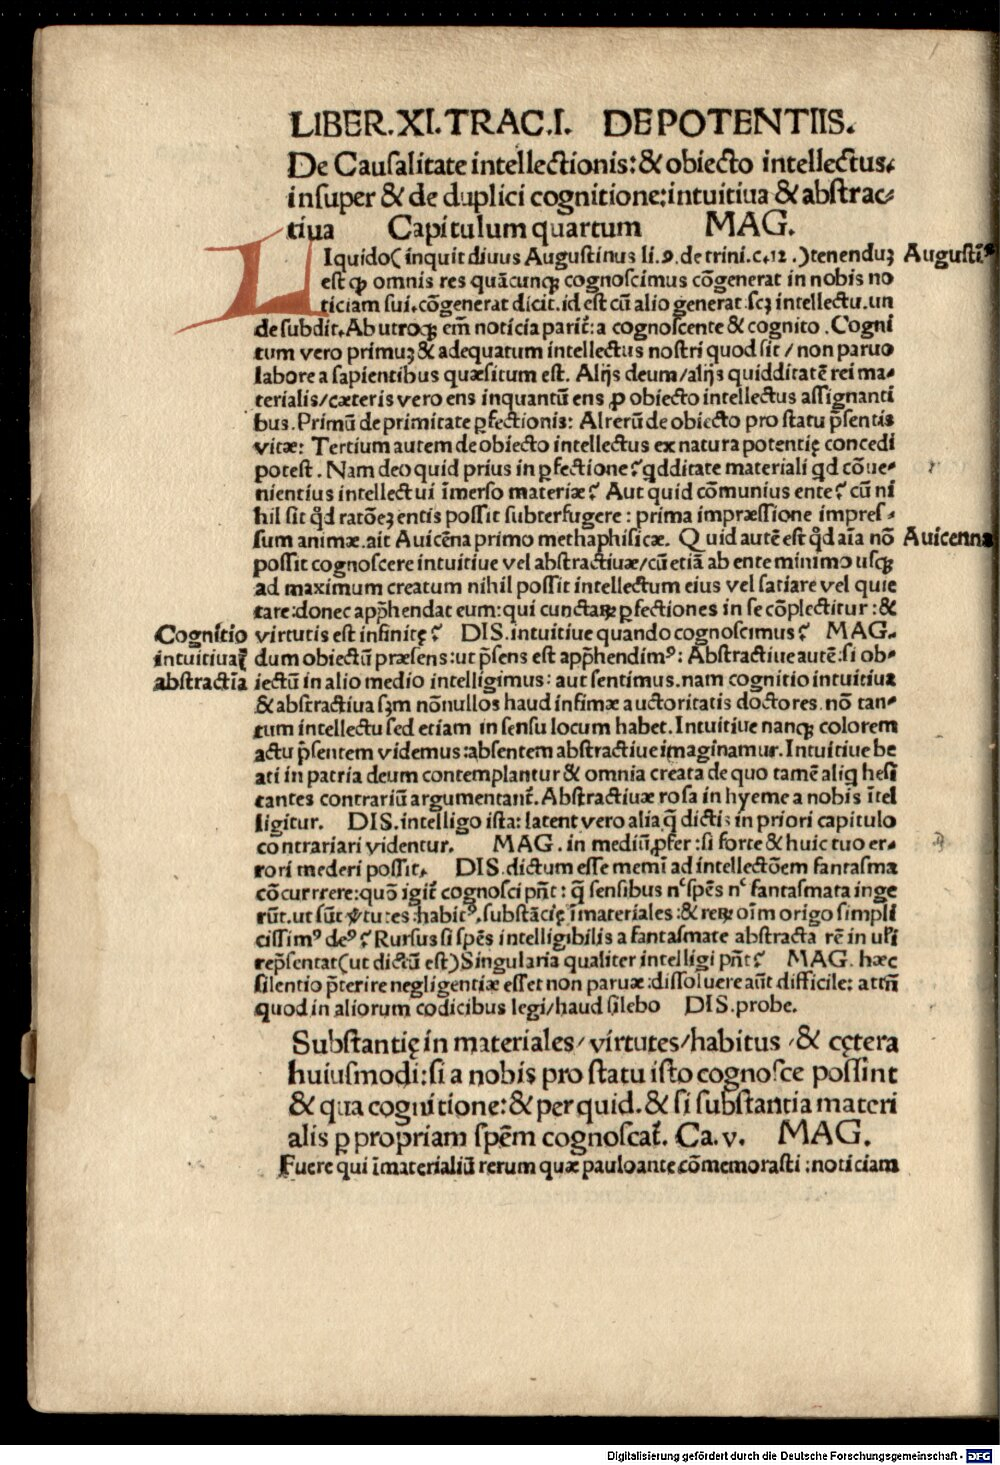 LIBER.XI.TRAC.I. DE POTENTIIS.
De Causalitate intellectionis:& obiecto intellectus.
insuper & de duplici cognitione:intuitiua & abstrac-
tiua Capitulum quartum MAG.
LIquido( inquit diuus Augustinus li.9.de trini.c.12.)tenenduȝ
Augusti⁹
est ꝙ omnis res quācunqȝ cognoscimus cōgenerat in nobis no
ticiam sui.cōgenerat dicit.id est cū alio generat.scȝ intellectu.un
de subdit.Ab utroqȝ em̄ noticia parit̄:a cognoscente & cognito .Cogni
tum vero primuȝ & adequatum intellectus nostri quod sit / non paruo
labore a sapientibus quæsitum est. Alijs deum/alijs quidditatē rei ma-
terialis/cæteris vero ens inquantū ens ꝓ obiecto intellectus assignanti
bus.Primū de primitate ꝑfectionis: Alrerū de obiecto pro statu p̄sentis
vitæ: Tertium autem de obiecto intellectus ex natura potentię concedi
potest. Nam deo quid prius in ꝑfectione? qdditate materiali qd cōue-
nientius intellectui īmerso materiæ? Aut quid cōmunius ente? cū ni
hil sit qd̄ ratōeȝ entis possit subterfugere : prima impræssione impres-
sum animæ.ait Auicēna primo methaphisicæ. Quid autē est qd̄ aīa nō
Auicenna
possit cognoscere intuitiue vel abstractiuæ/cū etiā ab ente minimo usqȝ
ad maximum creatum nihil possit intellectum eius vel satiare vel quie
tare:donec app̄hendat eum:qui cunctaꝝ ꝑfectiones in se cōplectitur :&
Cognitio
virtutis est infinitę? DIS.intuitiue quando cognoscimus? MAG.
intuitiua⁊̄
dum obiectū præsens:ut p̄sens est app̄hendim⁹: Abstractiue autē:si ob-
abstractīa
iectū in alio medio intelligimus: aut sentimus.nam cognitio intuitiua
& abstractiua sȝm nōnullos haud infimæ auctoritatis doctores.nō tan-
tum intellectu sed etiam in sensu locum habet.Intuitiue nanqȝ colorem
actu p̄sentem videmus:absentem abstractiue imaginamur.Intuitiue be
ati in patria deum contemplantur & omnia creata de quo tamē aliq hesi
tantes contrariū argumentant̄.Abstractiuæ rosa in hyeme a nobis ītel
ligitur. DIS.intelligo ista:latent vero alia:q̄ dictis in priori capitulo
contrariari videntur. MAG. in mediū ꝓfer :si forte & huic tuo er-
rori mederi possit. DIS.dictum esse memī ad intellectōem fantasma
cōcurrrere:quō igit̄ cognosci pn̄t: q̄ sensibus nᶜ spēs nᶜ fantasmata inge
rūt.ut sūt v̓tutes:habit⁹.substācię īmateriales:& reꝝ oīm origo simpli
cissim⁹ de⁹? Rursus si spēs intelligibilis a fantasmate abstracta rē in uƚi
rep̄sentat(ut dictū est)Singularia qualiter intelligi pn̄t? MAG. hæc
silentio p̄terire negligentiæ esset non paruæ:dissoluere aūt difficile: attn̄
quod in aliorum codicibus legi/haud silebo DIS.probe.
Substantię in materiales/ virtutes/habitus / & cętera
huiusmodi:si a nobis pro statu isto cognosce possint
& qua cognitione:& per quid.& si substantia materi
alis ꝑ propriam spēm cognoscat̄. Ca.v. MAG.
Fuere qui īmaterialiū rerum quæ pauloante cōmemorasti :noticiam
Digitalisierung gefördert durch die Deutsche Forschungsgemeinschaft - DFG